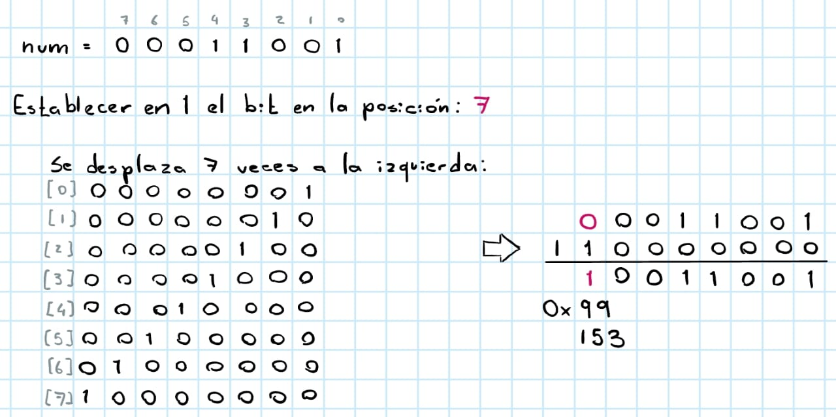 7 6 5 4 3 2 1 0
num = 0 0 0 1 1 0 0 1
Establecer en 1 el bit en la posición: 7
Se desplaza 7 veces a la izquierda:
[0] 0 0 0 0 0 0 0 1
[1] 0 0 0 0 0 0 1 0
[2] 0 0 0 0 0 1 0 0
[3] 0 0 0 0 1 0 0 0
[4] 0 0 0 1 0 0 0 0
[5] 0 0 1 0 0 0 0 0
[6] 0 1 0 0 0 0 0 0
[7] 1 0 0 0 0 0 0 0
0 0 0 1 1 0 0 1
| 1 0 0 0 0 0 0 0
1 0 0 1 1 0 0 1
0x99
153